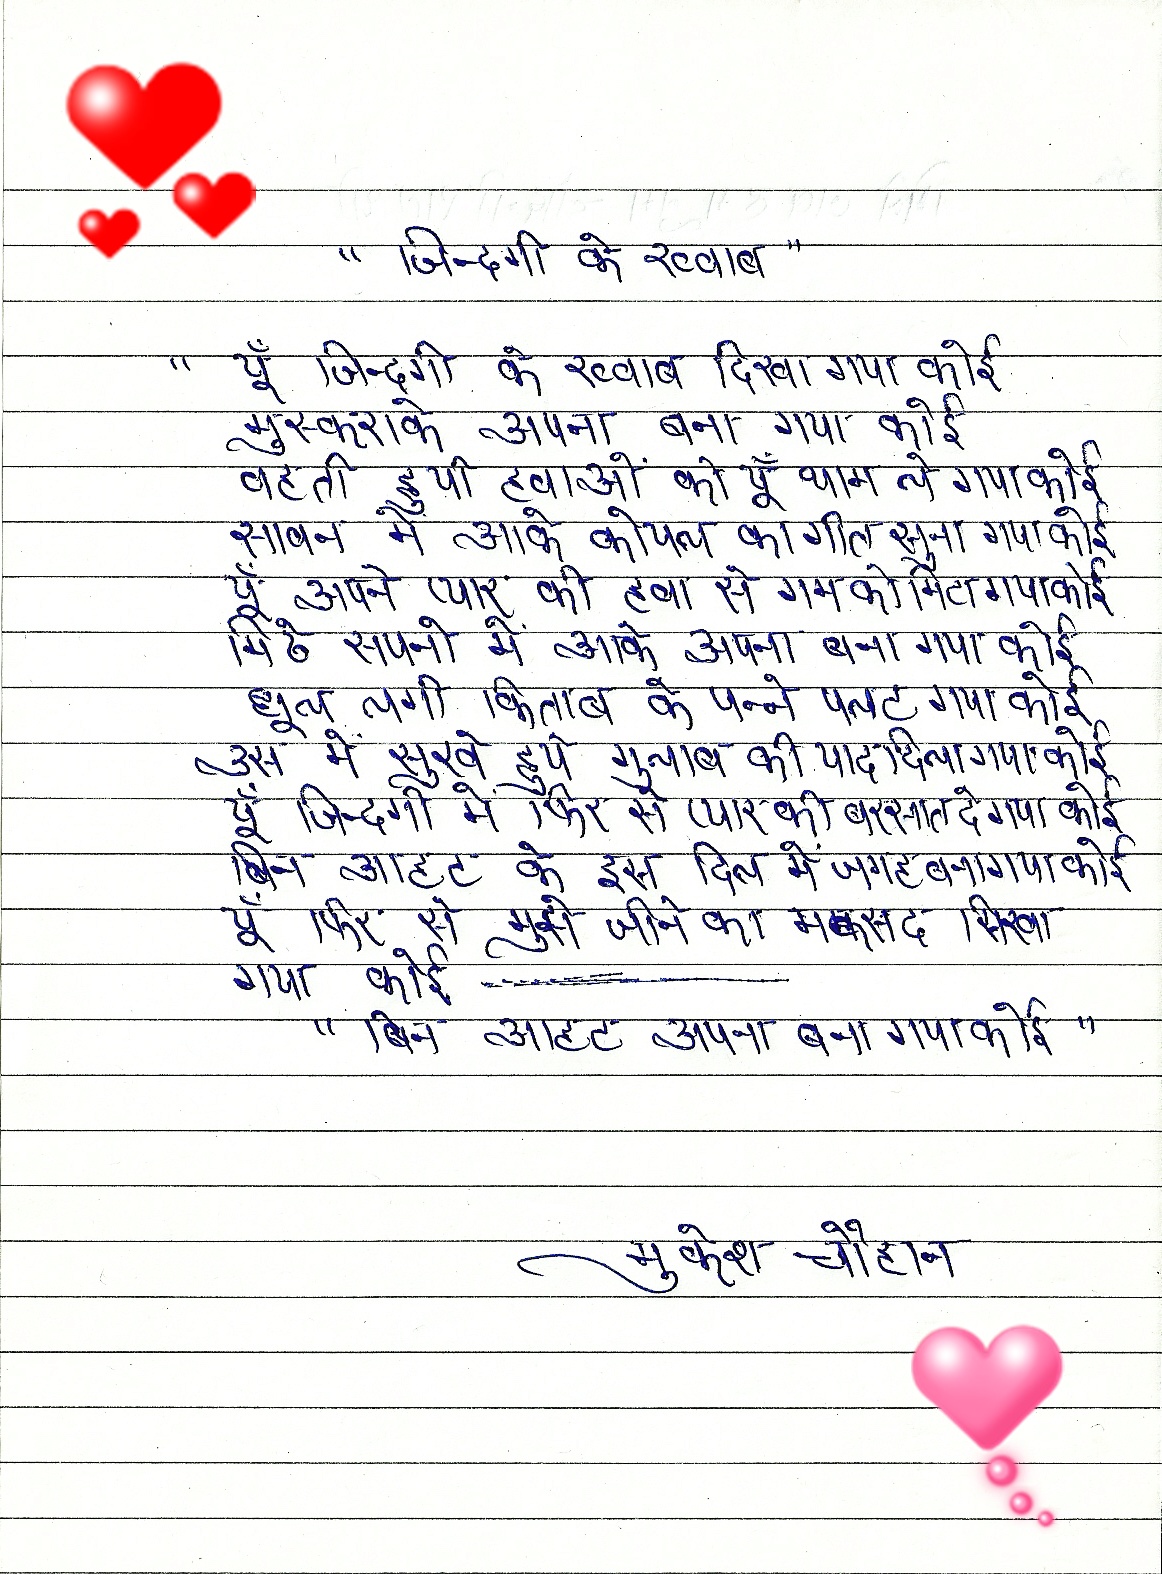 " जिन्दगी के ख्वाब "
" यूँ जिन्दगी के ख्वाब दिखा गया कोई
मुस्कराके अपना बना गया कोई
वहती हुयी हवाओं को यूँ थाम ले गया कोई
सावन में आके कोयल का गीत सुना गया कोई
यूँ अपने प्यार की हवा से गम को मिटा गया कोई
मिठे सपनो में आके अपना बना गया कोई
धूल लगी किताब के पन्ने पलट गया कोई
उस में सुखे हुये गुलाब की याद दिला गया कोई
यूँ जिन्दगी में फिर से प्यार की बरसात दे गया कोई
बिन आहट के इस दिल में जगह बना गया कोई
यूँ फिर से मुझे जीने का मकसद सिखा
गया कोई
" बिन आहट अपना बना गया कोई "
मुकेश चौहान